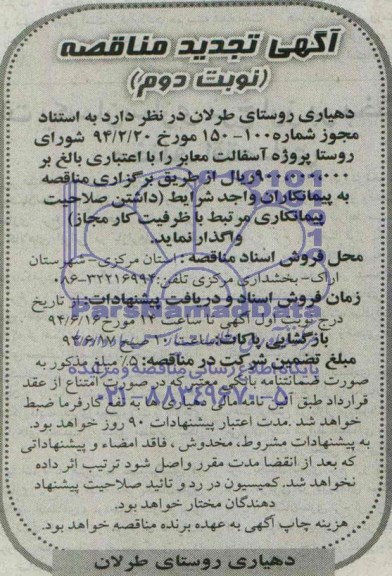 آگهی تجدید مناقصه
(نوبت دوم)
دهیاری روستای طرلان در نظر دارد به استناد
مجوز شماره ۱۰۰-۱۵۰ مورخ ۹۴/۲/۲۰ شورای
روستا پروژه آسفالت معابر را با اعتباری بالغ بر
ریال از طریق برگزاری مناقصه
به پیمانکاران واجد شرایط (داشتن صلاحیت
پیمانکاری مرتبط با ظرفیت کار مجاز)
واگذار نماید.
محل فروش اسناد مناقصه: استان مرکزی- شهرستان
اراک- بخشداری مرکزی تلفن: ۳۲۲۱۶۹۹۲-۰۸۶
زمان فروش اسناد و دریافت پیشنهادات: از تاریخ
درج نوبت اول آگهی تا ساعت ۱۴ مورخ ۹۴/۶/۱۶
بازگشایی پاکات: ساعت ۱۰ صبح ۹۴/۶/۱۷
ParsNamadData
مبلغ تضمین شرکت در مناقصه: ۵٪ مبلغ مذکور به
پایگاه اطلاع رسانی مناقصه و مزایده
صورت ضمانتنامه بانکی معتبر که در صورت امتناع از عقد
۰۲۱-۸۸۳۴۹۶۷۰-۵
قرارداد طبق آئین نامه مالی دهیاری ها به نفع کارفرما ضبط
خواهد شد. مدت اعتبار پیشنهادات ۹۰ روز خواهد بود.
به پیشنهادات مشروط، مخدوش، فاقد امضاء و پیشنهاداتی
که بعد از انقضا مدت مقرر واصل شود ترتیب اثر داده
نخواهد شد. کمیسیون در رد و تائید صلاحیت پیشنهاد
دهندگان مختار خواهد بود.
هزینه چاپ آگهی به عهده برنده مناقصه خواهد بود.
دهیاری روستای طرلان